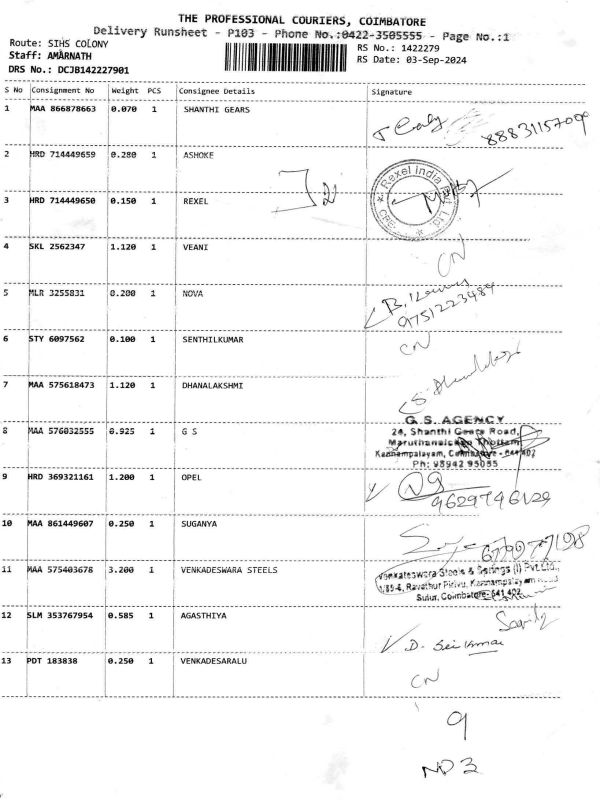 THE PROFESSIONAL COURIERS, COIMBATORE
Delivery Runsheet - P103 - Phone No.:0422-3505555 - Page No.:1
Route: SIHS COLONY
RS No.: 1422279
Staff: AMARNATH
RS Date: 03-Sep-2024
DRS No.: DCJB142227901
S No Consignment No Weight PCS Consignee Details Signature
1 MAA 866878663 0.070 1 SHANTHI GEARS
2 HRD 714449659 0.280 1 ASHOKE
Rexel India Pvt Ltd
3 HRD 714449650 0.150 1 REXEL
4 SKL 2562347 1.120 1 VEANI
CN
5 MLR 3255831 0.200 1 NOVA
9751223484
6 STY 6097562 0.100 1 SENTHILKUMAR
CN
7 MAA 575618473 1.120 1 DHANALAKSHMI
8 MAA 576032555 0.925 1 G S
G.S. AGENCY
24, Shanthi Gears Road,
Kannampalayam, Coimbatore - 641 402
Ph: 98942 95055
9 HRD 369321161 1.200 1 OPEL
9629746129
10 MAA 861449607 0.250 1 SUGANYA
11 MAA 575403678 3.200 1 VENKADESWARA STEELS
Venkateswara Steels & Springs (I) Pvt.Ltd.,
1/89-6, Ravathur Pirivu, Kannampalayam
Sulur, Coimbatore-641 402
12 SLM 353767954 0.585 1 AGASTHIYA
D. Sri Kumar
13 PDT 183838 0.250 1 VENKADESARALU
CN
9
ND 3